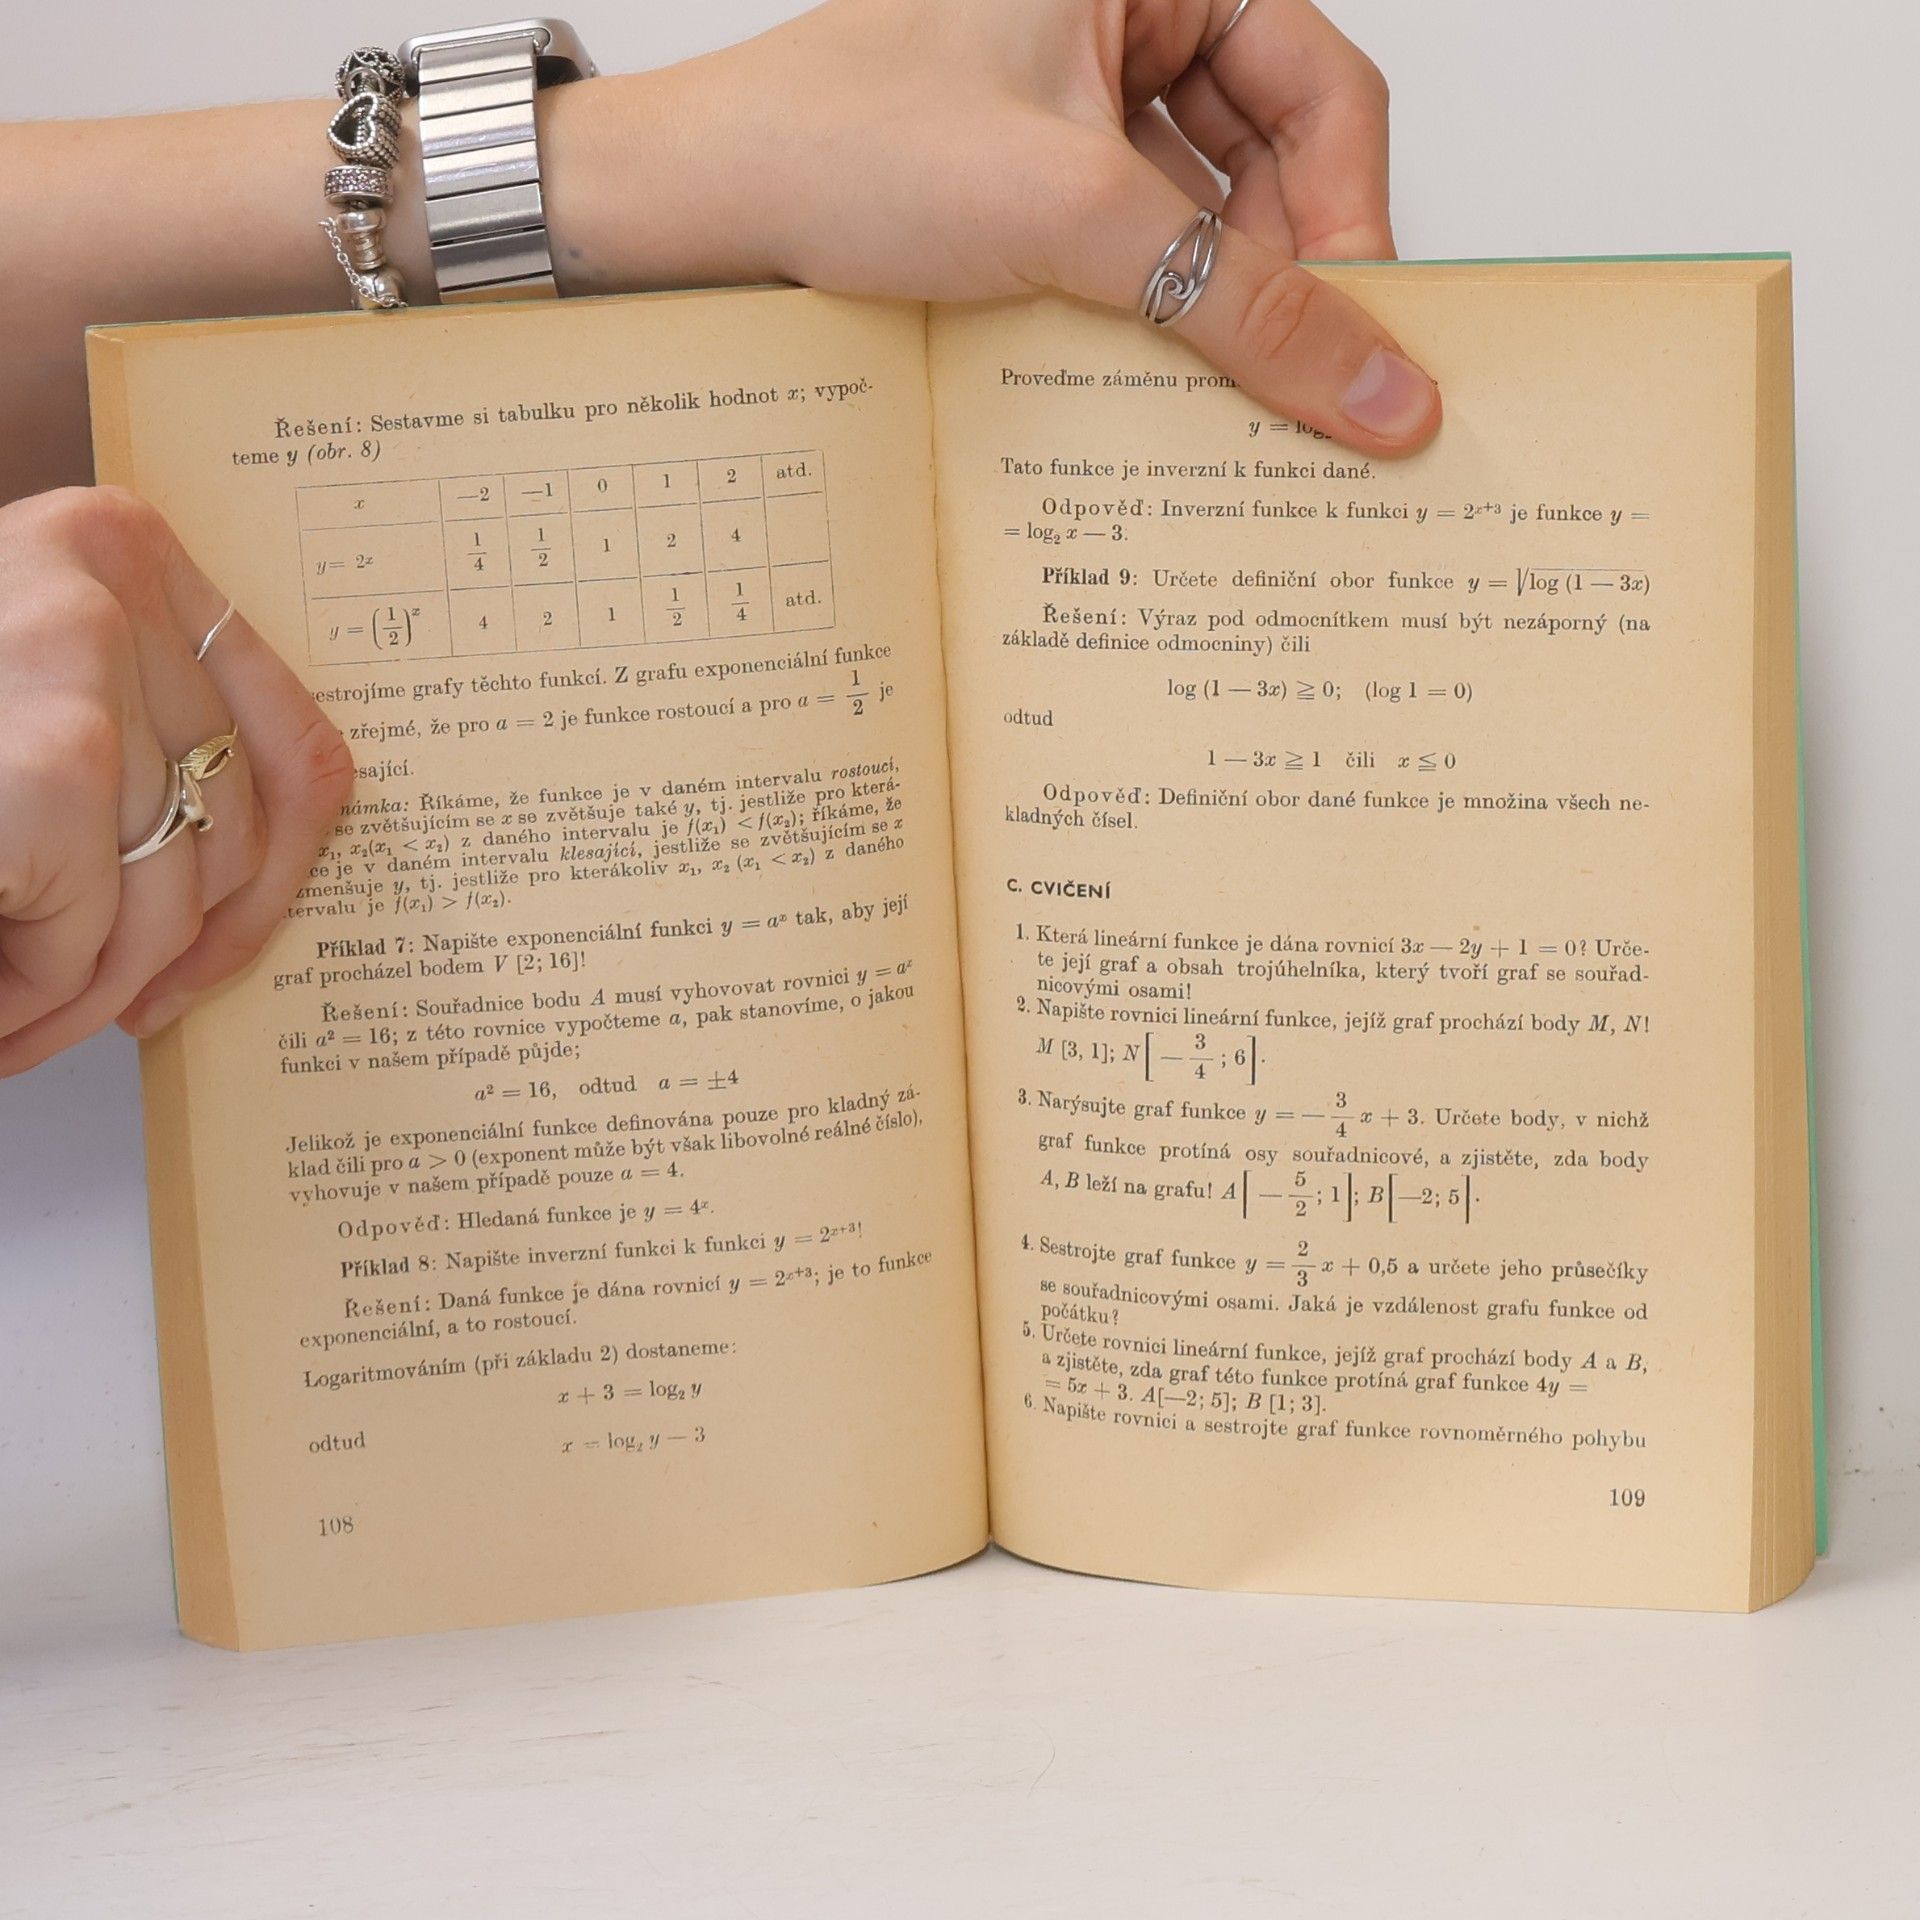 Řešení: Sestavme si tabulku pro několik hodnot x; vypoč-
teme y (obr. 8)
x —2 —1 0 1 2 atd.
y = 2ˣ 1/4 1/2 1 2 4
y = (1/2)ˣ 4 2 1 1/2 1/4 atd.
grafy těchto funkcí. Z grafu exponenciální funkce
zřejmé, že pro a = 2 je funkce rostoucí a pro a = 1/2 je
Říkáme, že funkce je v daném intervalu rostoucí,
se zvětšujícím se x se zvětšuje také y, tj. jestliže pro která-
x₁, x₂(x₁ < x₂) z daného intervalu je f(x₁) < f(x₂); říkáme, že
je v daném intervalu klesající, jestliže se zvětšujícím se x
zmenšuje y, tj. jestliže pro kterákoliv x₁, x₂ (x₁ < x₂) z daného
je f(x₁) > f(x₂).
Příklad 7: Napište exponenciální funkci y = aˣ tak, aby její
graf procházel bodem V [2; 16]!
Řešení: Souřadnice bodu A musí vyhovovat rovnici y = aˣ
čili a² = 16; z této rovnice vypočteme a, pak stanovíme, o jakou
funkci v našem případě půjde;
a² = 16, odtud a = ±4
Jelikož je exponenciální funkce definována pouze pro kladný zá-
klad čili pro a > 0 (exponent může být však libovolné reálné číslo),
vyhovuje v našem případě pouze a = 4.
Odpověď: Hledaná funkce je y = 4ˣ.
Příklad 8: Napište inverzní funkci k funkci y = 2ˣ⁺³!
Řešení: Daná funkce je dána rovnicí y = 2ˣ⁺³; je to funkce
exponenciální, a to rostoucí.
Logaritmováním (při základu 2) dostaneme:
x + 3 = log₂ y
odtud x = log₂ y — 3
108
Proveďme záměnu
y =
Tato funkce je inverzní k funkci dané.
Odpověď: Inverzní funkce k funkci y = 2ˣ⁺³ je funkce y =
= log₂ x — 3.
Příklad 9: Určete definiční obor funkce y = √log (1 — 3x)
Řešení: Výraz pod odmocnítkem musí být nezáporný (na
základě definice odmocniny) čili
log (1 — 3x) ≧ 0; (log 1 = 0)
odtud
1 — 3x ≧ 1 čili x ≦ 0
Odpověď: Definiční obor dané funkce je množina všech ne-
kladných čísel.
C. CVIČENÍ
1. Která lineární funkce je dána rovnicí 3x — 2y + 1 = 0? Urče-
te její graf a obsah trojúhelníka, který tvoří graf se souřad-
nicovými osami!
2. Napište rovnici lineární funkce, jejíž graf prochází body M, N!
M [3, 1]; N[— 3/4 ; 6].
3. Narýsujte graf funkce y = — 3/4 x + 3. Určete body, v nichž
graf funkce protíná osy souřadnicové, a zjistěte, zda body
A, B leží na grafu! A[— 5/2 ; 1]; B[—2; 5].
4. Sestrojte graf funkce y = 2/3 x + 0,5 a určete jeho průsečíky
se souřadnicovými osami. Jaká je vzdálenost grafu funkce od
počátku?
5. Určete rovnici lineární funkce, jejíž graf prochází body A a B,
a zjistěte, zda graf této funkce protíná graf funkce 4y =
= 5x + 3. A[—2; 5]; B [1; 3].
6. Napište rovnici a sestrojte graf funkce rovnoměrného pohybu
109